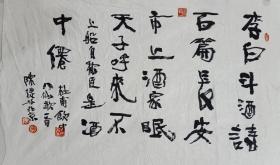 李白斗酒詩
百篇長安
市上酒家眠
天子呼來不
上船自稱臣是酒
中僊
杜甫飲中
八仙歌